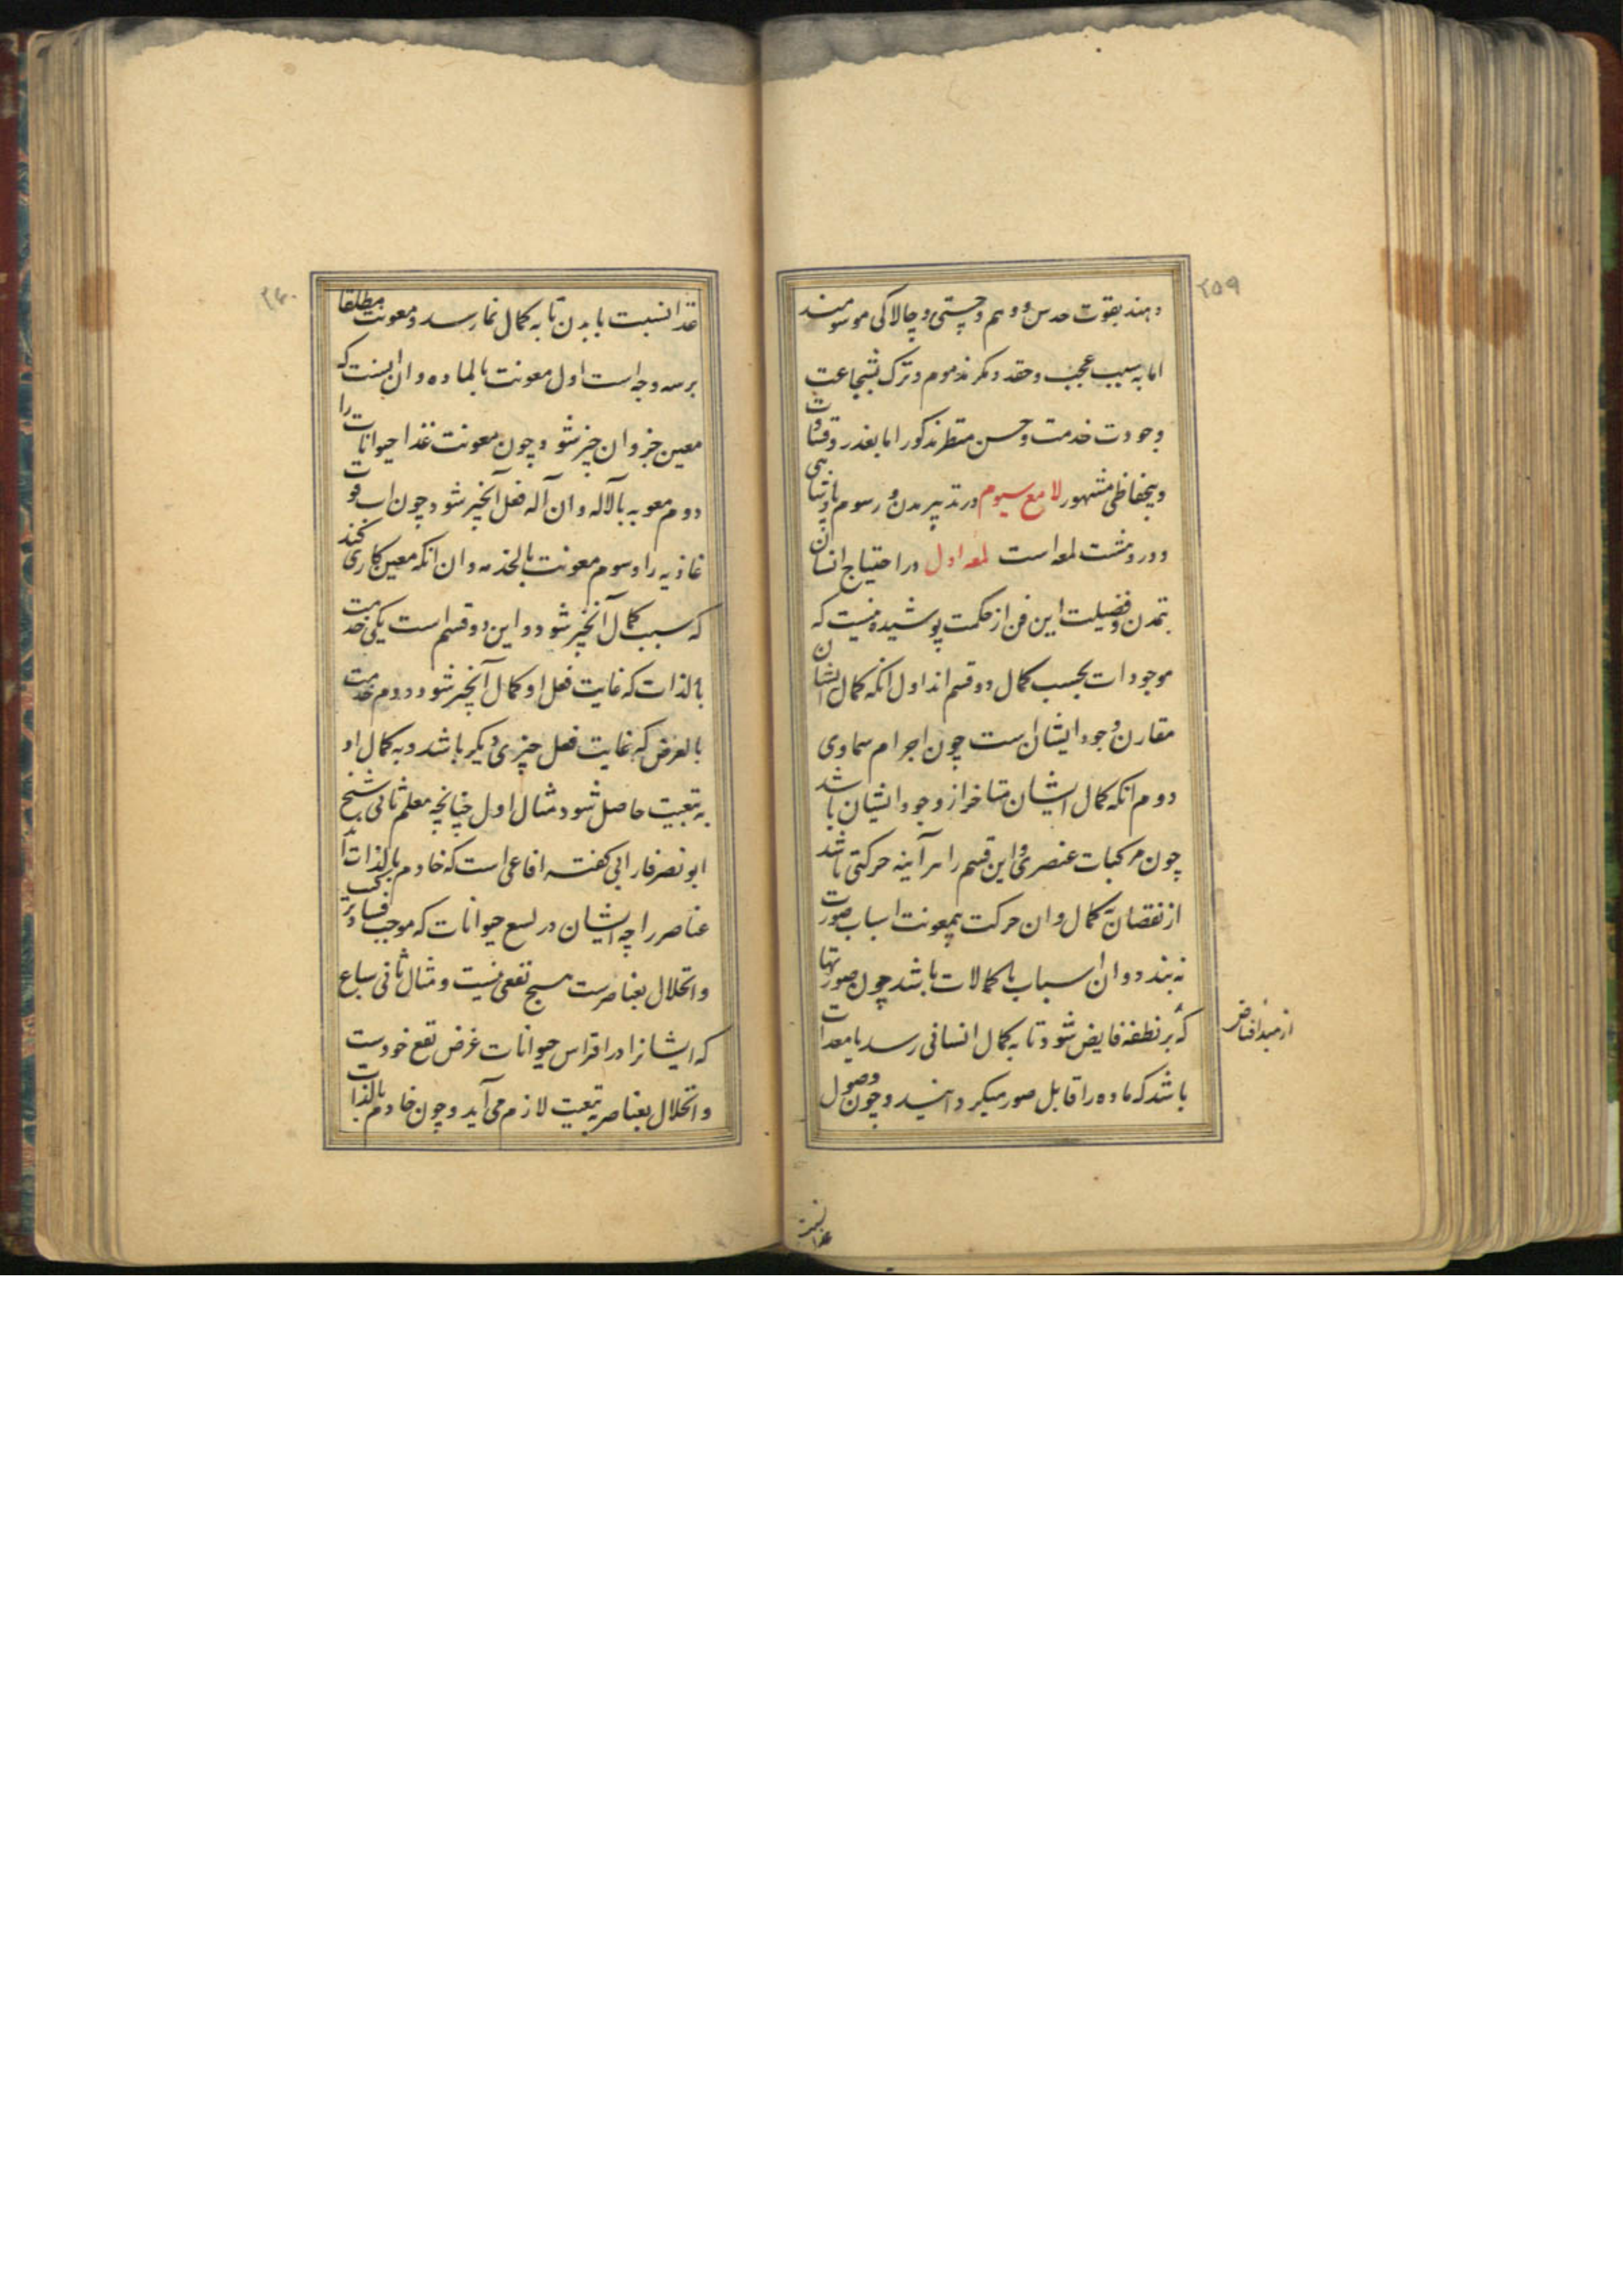 ۲۵۹
و هند بقوت حدس و وهم و چستی و چالاکی موسومند
اما به سبب عجب و حقد و مکر مذموم و ترک بشجاعت
و جودت خدمت و حسن منظر مذکور اما بغدر و قساوت
و بیحفاظی مشهور لامع سیوم در تدبیر مدن و رسوم پادشاهی
و درو هشت لمعه است لمعه اول در احتیاج انسان
بتمدن و فضیلت این فن از حکمت پوشیده نیست که
موجودات بحسب کمال دو قسم اند اول انکه کمال ایشان
مقارن وجود ایشان است چون اجرام سماوی
دوم انکه کمال ایشان متاخر از وجود ایشان باشد
چون مرکبات عنصری و این قسم را هر آینه حرکتی باشد
از نقصان بکمال و ان حرکت بیمعونت اسباب صورت
نه بندد و ان اسباب یا کمالات باشد چون صورتها
که بر نطفه فایض شود تا به کمال انسانی رسد یا معدات
باشد که ماده را قابل صور میکرداند و چون وصول
از مبدا فیاض
غذا نسبت
۲۶۰
غذا نسبت با بدن تا به کمال نما رسد و معونت مطلقا
بر سه وجه است اول معونت بالماده و ان اینست که
معین جزو ان چیز شود چون معونت غذا حیوانات را
دوم معونه بالاله و ان آله فعل آنچیز شود چون اب قوت
غاذیه را و سوم معونت بالخدمه و ان انکه معین کاری کند
که سبب کمال آنچیز شود و این دو قسم است یکی خدمت
بالذات که غایت فعل او کمال آنچیز شود و دوم خدمت
بالعرض که غایت فعل چیزی دیکر باشد و به کمال او
به تبعیت حاصل شود مثال اول چنانچه معلم ثانی شیخ
ابو نصر فارابی کفته افاعی است که خادم بالذات اند
عناصر را چه ایشان در لسع حیوانات که موجب فساد ترکیب
و انحلال بعناصرست هیچ نفعی نیست و مثال ثانی سباع
که ایشانرا در افتراس حیوانات غرض نفع خودست
و انحلال بعناصر به تبعیت لازم می آید و چون خادم بالذات